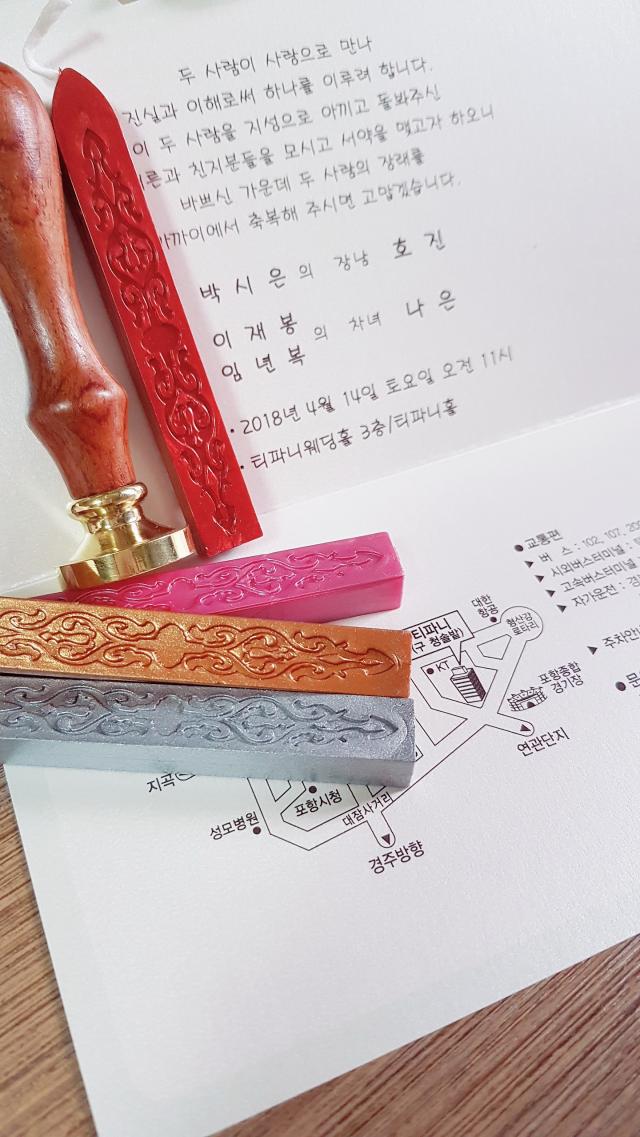 두 사람이 사랑으로 만나
진실과 이해로써 하나를 이루려 합니다.
이 두 사람을 지성으로 아끼고 돌봐주신
른과 친지분들을 모시고 서약을 맺고자 하오니
바쁘신 가운데 두 사람의 장래를
까이에서 축복해 주시면 고맙겠습니다.
박 시 은 의 장남 호 진
이 재 봉
임 년 복 의 차녀 나 은
· 2018년 4월 14일 토요일 오전 11시
· 티파니웨딩홀 3층/티파니홀
● 교통편
▶ 버 스 : 102, 107, 200
▶ 시외버스터미널
▶ 고속버스터미널
▶ 자가운전 :
▶ 주차안
대한
항공
형산강
로타리
티파니
(구 청솔밭)
KT
포항종합
경기장
연관단지
지곡
포항시청
대잠사거리
성모병원
경주방향